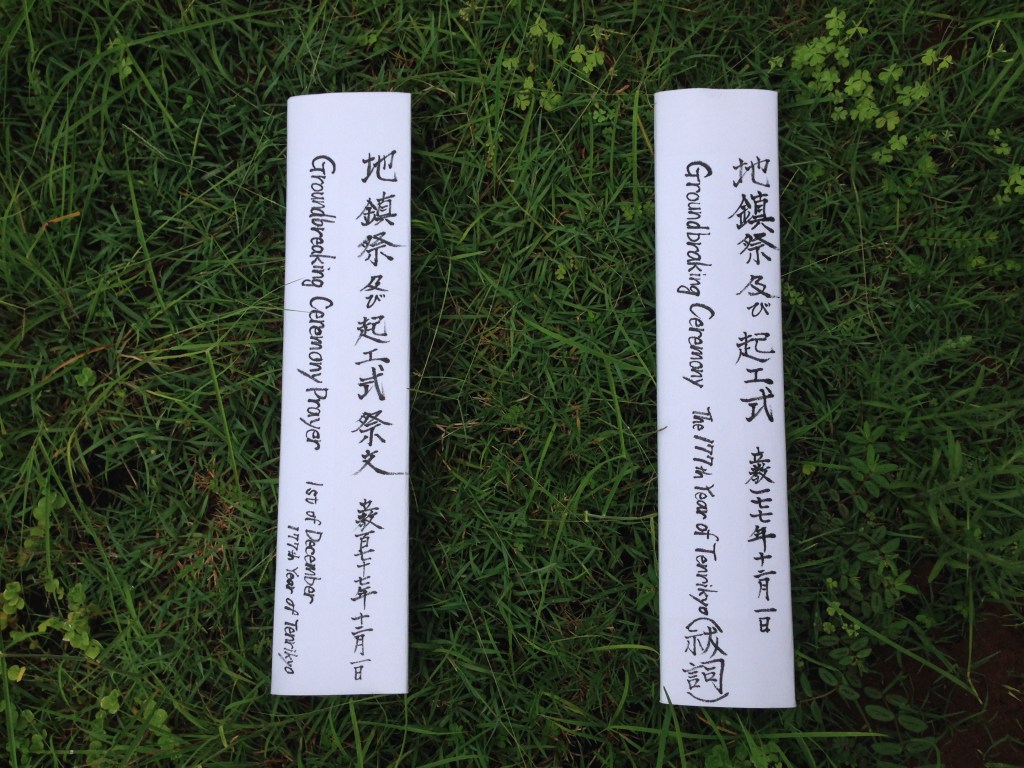 地鎮祭及び起工式祭文 立教百七十七年十二月一日
Groundbreaking Ceremony Prayer 1st of December
177th Year of Tenrikyo
地鎮祭及び起工式 立教一七七年十二月一日
Groundbraking Ceremony The 177th Year of Tenrikyo (祓詞)